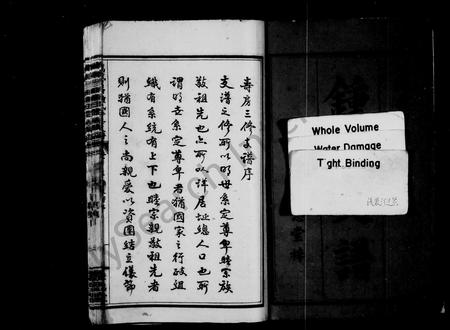 壽房三修支譜序
支譜之修所以明世系定尊卑睦宗族
敬祖先也亦所以詳居址總人口也所
謂明世系定尊卑者猶國家之行政組
織有系統有上下也睦宗親敬祖先者
則猶國人之尚親愛以資團結立儀節
Whole Volume
Water Damage
Tight Binding
鍾
譜
堂